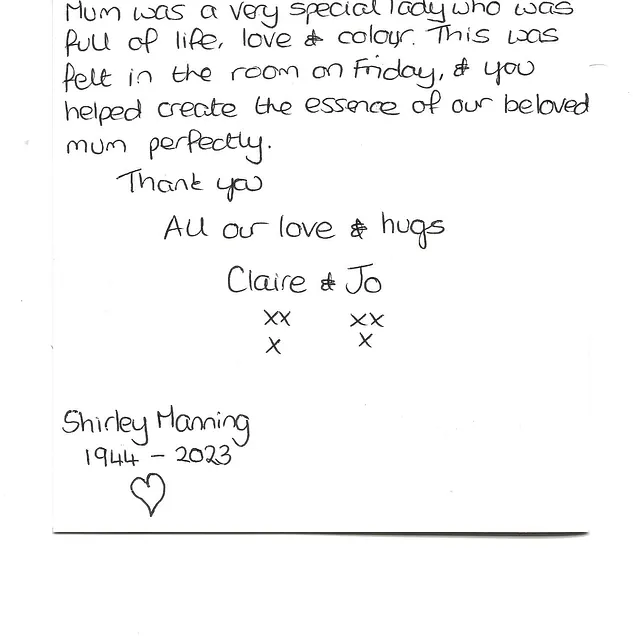 Mum was a very special lady who was
full of life, love & colour. This was
felt in the room on Friday, & you
helped create the essence of our beloved
mum perfectly.
Thank you
All our love & hugs
Claire & Jo
xx xx
x x
Shirley Manning
1944 - 2023